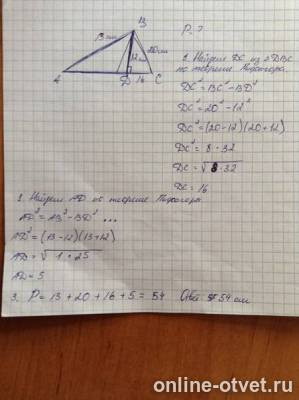 B
P-?
13 см
20 см
12 см
A
D
16
C
1. Найдем DC из ΔDBC
по теореме Пифагора.
DC² = BC² - BD²
DC² = 20² - 12²
DC² = (20-12)(20+12)
DC² = 8 · 32
DC = √8·32
DC = 16
2. Найдем AD по теореме Пифагора
AD² = AB² - BD² ...
AD² = (13-12)(13+12)
AD = √1·25
AD = 5
3. P = 13 + 20 + 16 + 5 = 54 Ответ 54 см
online-otvet.ru